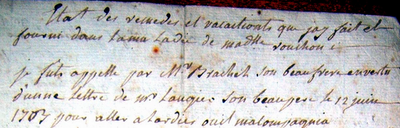 Etat des remedes et vacations que jay fait et
fourni dans la maladie de mad.lle rouchon :
je fuis appellé par Mr Brachet son beaufrere en vertu
d'une Lettre de mr Lauques son beaupere le 12 juin
1767 pour aller a tardier ou il m'acompagnia